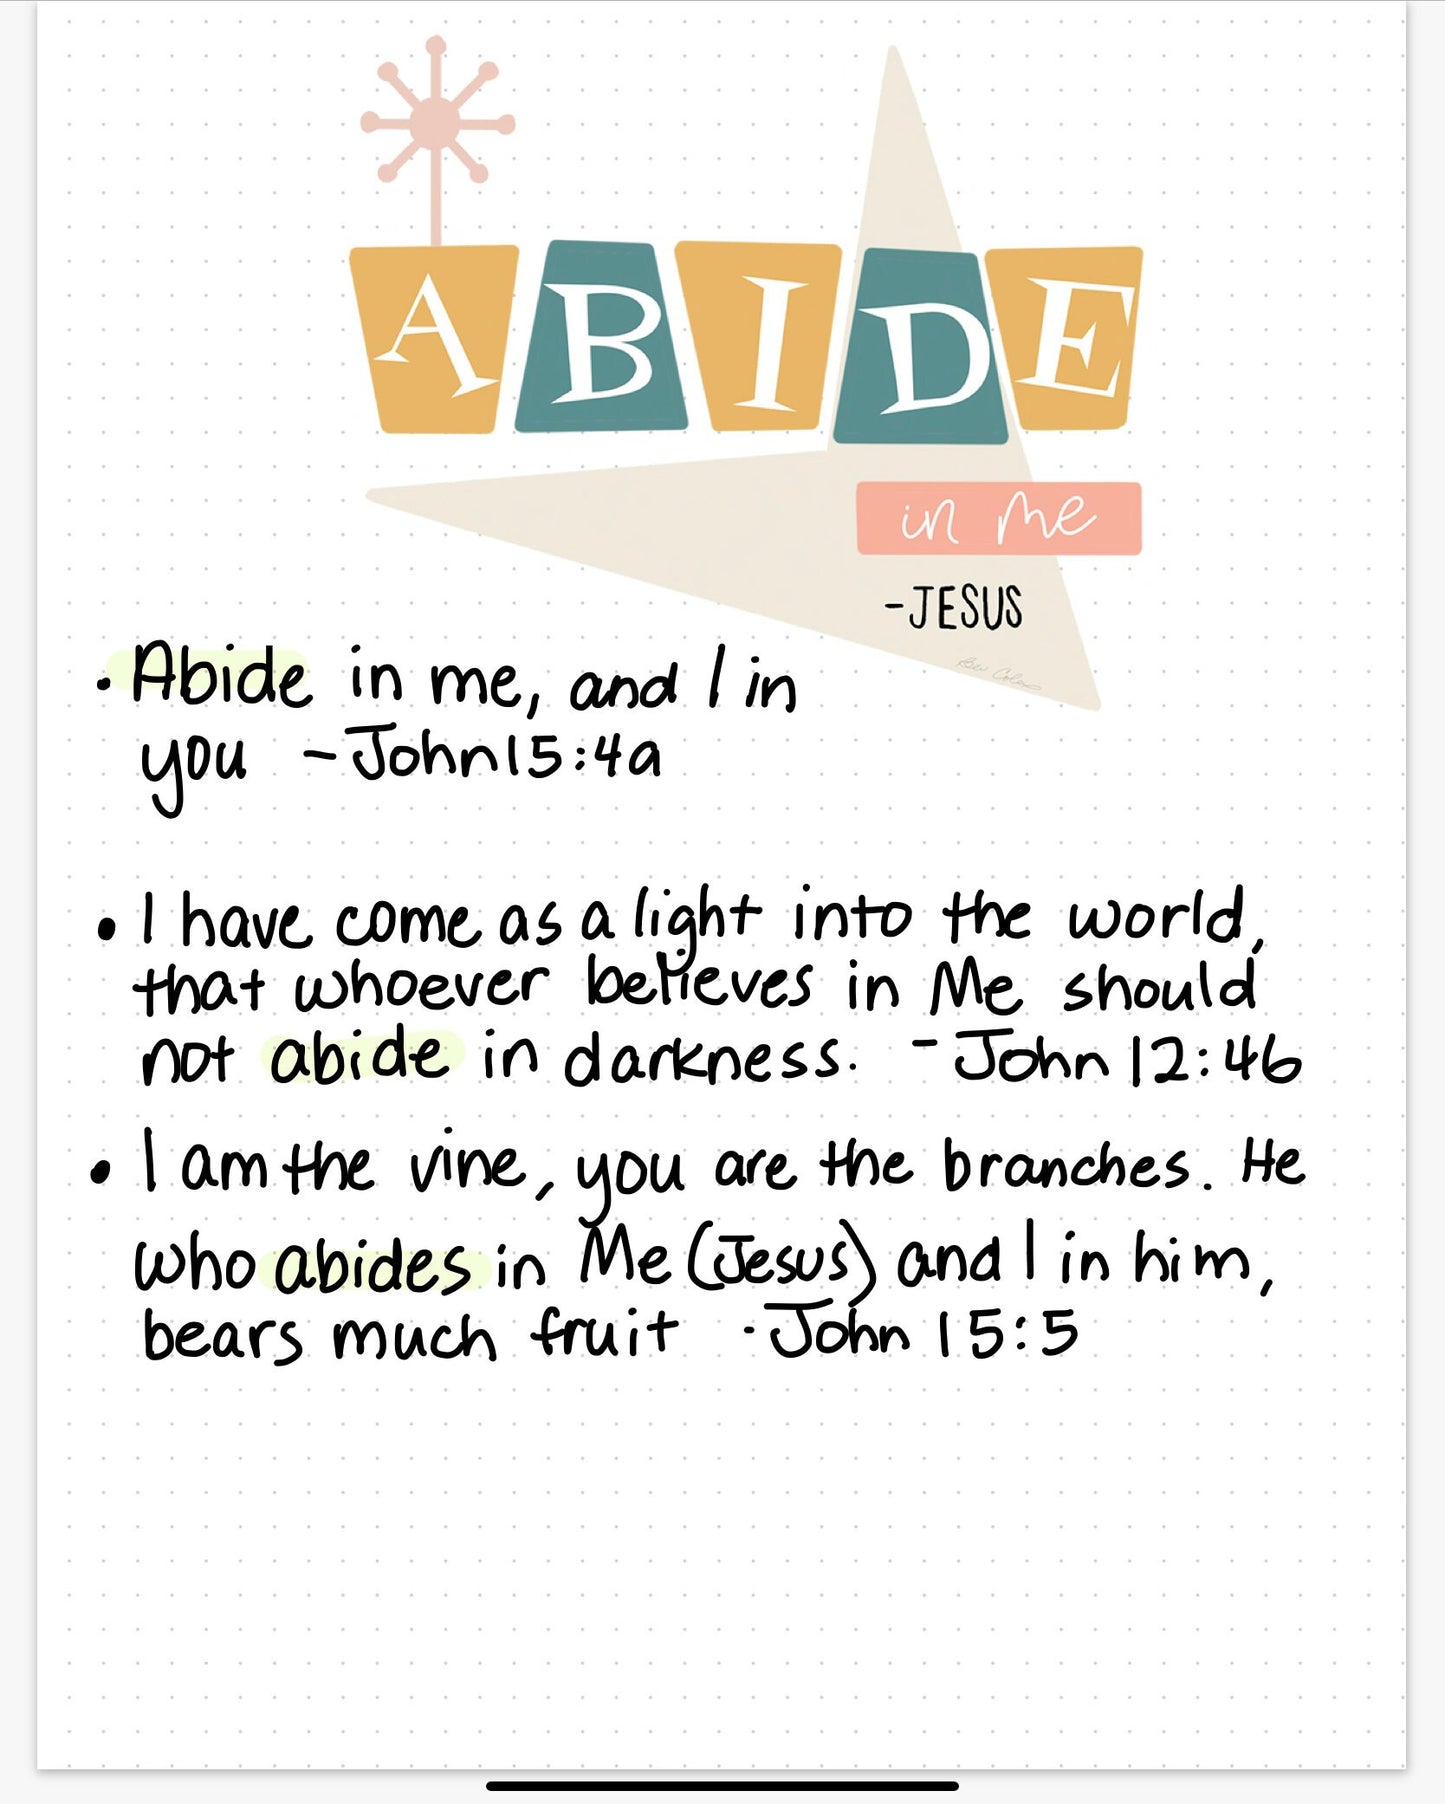 ABIDE
in me
-JESUS
• Abide in me, and I in
you - John 15:4a
• I have come as a light into the world,
that whoever believes in Me should
not abide in darkness. - John 12:46
• I am the vine, you are the branches. He
who abides in Me (Jesus) and I in him,
bears much fruit - John 15:5